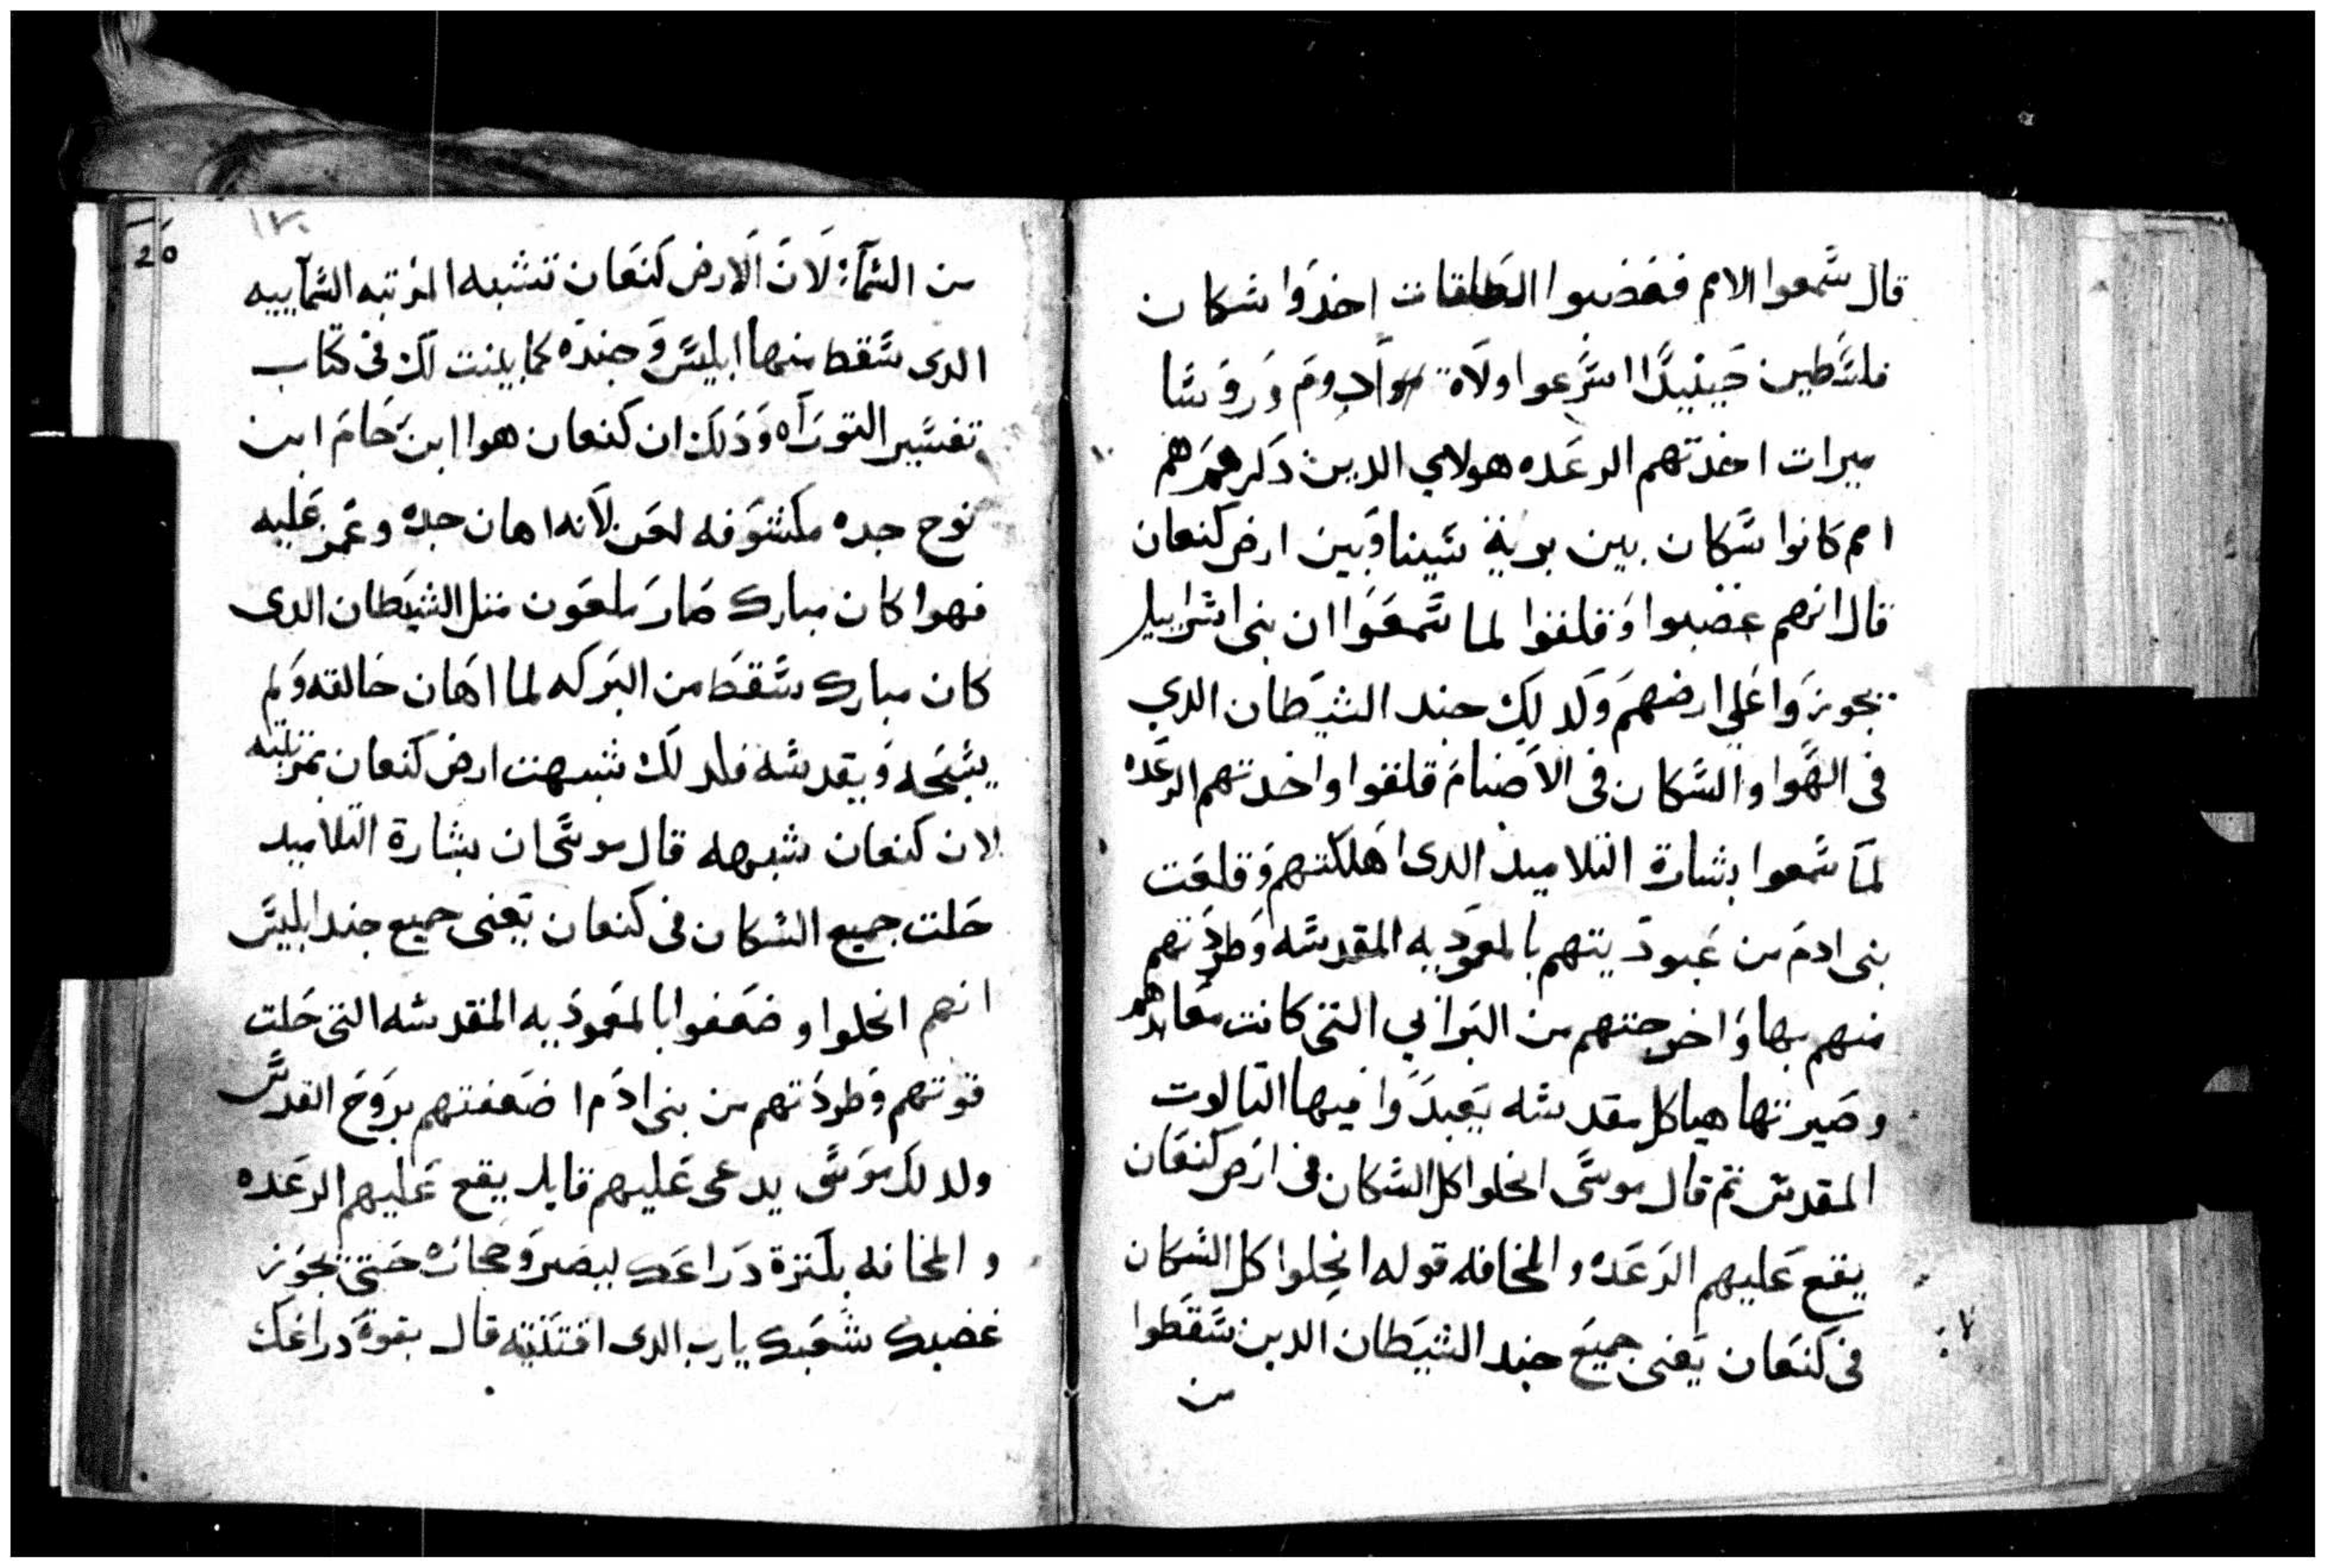 قال سمعوا الامم فغضبوا الطلقات اخذوا سكان
فلسطين حينيدا اسرعوا ولاة ادوم وروسا
ميرات اخدتهم الرعده هولاي الدين دكرهم هم
امم كانوا سكان بين برية سينا وبين ارض كنعان
قال انهم غضبوا وقلقوا لما سمعوا ان بنى اسراييل
يجوزوا على ارضهم وكدلك جند الشيطان الدي
فى الهوا والسكان فى الاصنام قلقوا واخدتهم الرعده
لما سمعوا بشارة التلاميد الدى اهلكتهم وقلعت
بنى ادم من عبوديتهم بالمعموديه المقدسه وطردتهم
منهم بها واخرجتهم من البرابي التى كانت معابدهم
وصيرتها هياكل مقدسه يعبدوا فيها التالوت
المقدس تم قال موسى انحلوا كل السكان فى ارض كنعان
يقع عليهم الرعده والمخافه قوله انحلوا كل السكان
فى كنعان يعنى جميع جند الشيطان الدين سقطوا
من
١٢٠
20
من السما: لان الارض كنعان تشبه المرتبه السماييه
الدى سقط منها ابليس وجنده كما بينت لك فى كتاب
تفسير التوراه ودلك ان كنعان هوا ابن حام ابن
نوح جده مكشوفه لعن لانه اهان جده وغمز عليه
فهوا كان مبارك صار ملعون متل الشيطان الدى
كان مبارك سقط من البركه لما اهان خالقه ولم
يسبحه ويقدسه فلدلك شبهت ارض كنعان بمرتبته
لان كنعان شبهه قال موسى ان بشارة التلاميد
حلت جميع السكان فى كنعان يعنى جميع جند ابليس
انهم انحلوا وضعفوا بالمعموديه المقدسه التى حلت
قوتهم وطردتهم من بنى ادم اضعفتهم بروح القدس
ولدلك موسى يدعى عليهم قايلا يقع عليهم الرعده
والمخافه بكترة دراعك ليصيروا حجاره حتى يجوز
غضبك شعبك يارب الدى اقتنيته قال بقوة دراعك